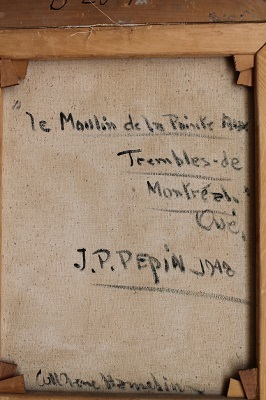 "Le Moulin de la Pointe Aux
Trembles-de
Montréal"
Qué,
J.P. PEPIN 1948